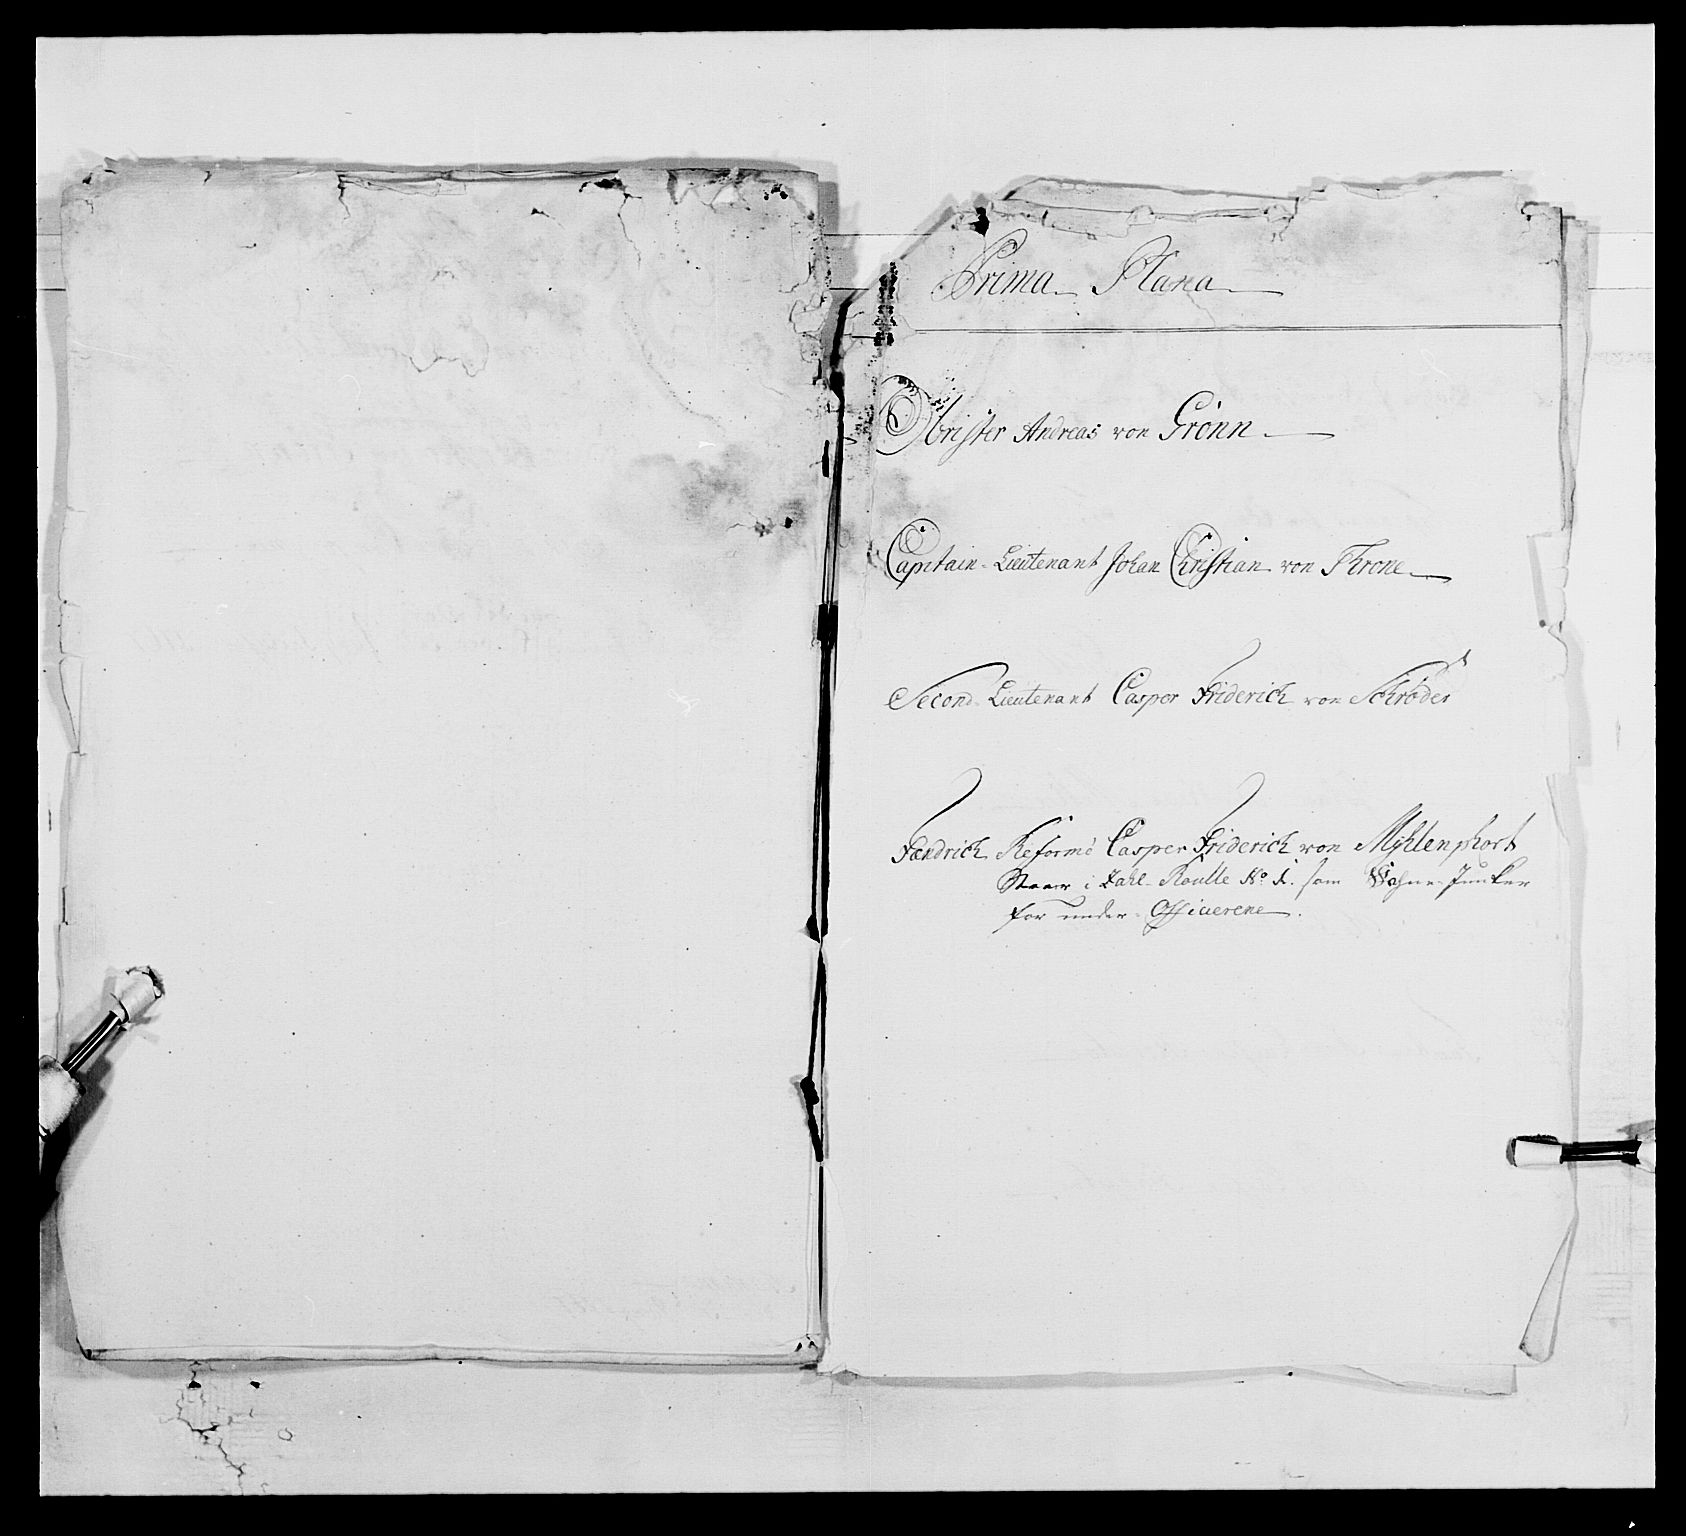 Prima Plana
Obrister Andreas von Grönn
Capitain-Lieutenant Johan Christian von Throne
Second-Lieutenant Casper Friderich von Schrøder
Fændrich Reformé Casper Friderich von Myhlenphort
Staar i Zahl-Roulle No 1. som Fahne-Junker
for under-Officierene.